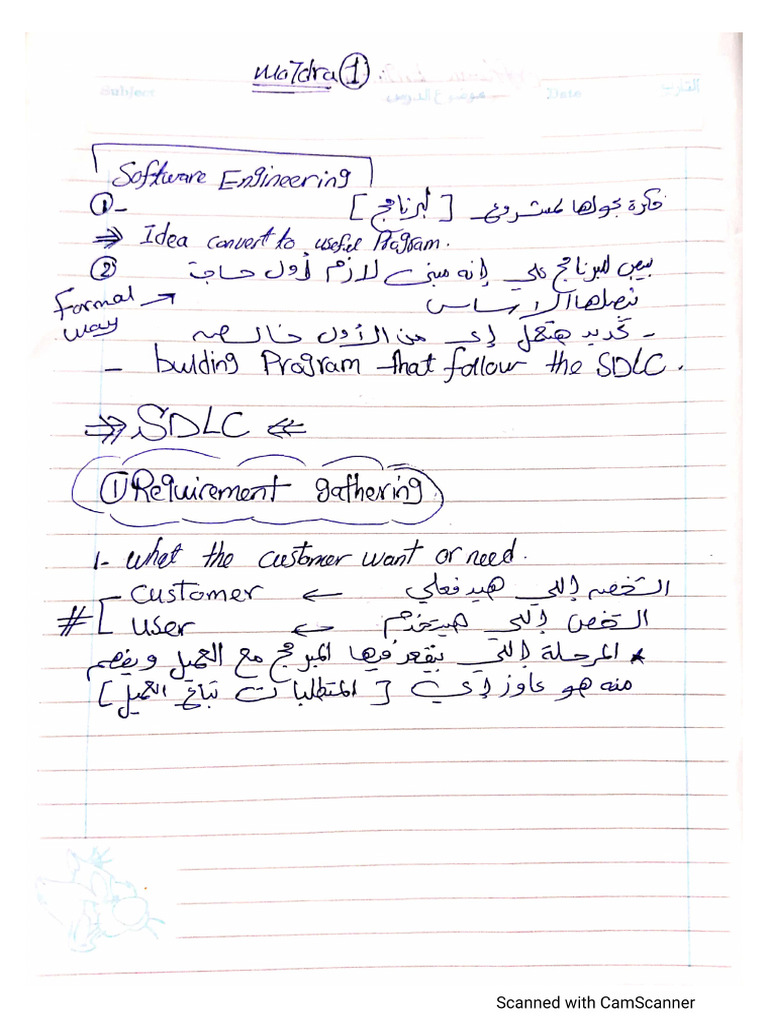 mo7dra ①.
Subject
موضوع الدرس
Date
التاريخ
Software Engineering
①- فكرة بحولها لمشروع [لبرنامج]
⇒ Idea convert to useful Program.
② ببص للبرنامج على إنه مبنى لازم أول حاجة
Formal way → نصلها الأساس
- تحديد هتعمل إى من الأول خالص
- bulding Program that follow the SDLC.
⇒ SDLC ⇐
① Requirement gathering
1- what the customer want or need.
# customer ← الشخص إللي هيدفعلي
user ← الشخص إللي هيستخدم
* المرحلة إللي بيقعد فيها المبرمج مع العميل ويفهم
منه هو عاوز إي [المتطلبات بتاع العميل]
Scanned with CamScanner